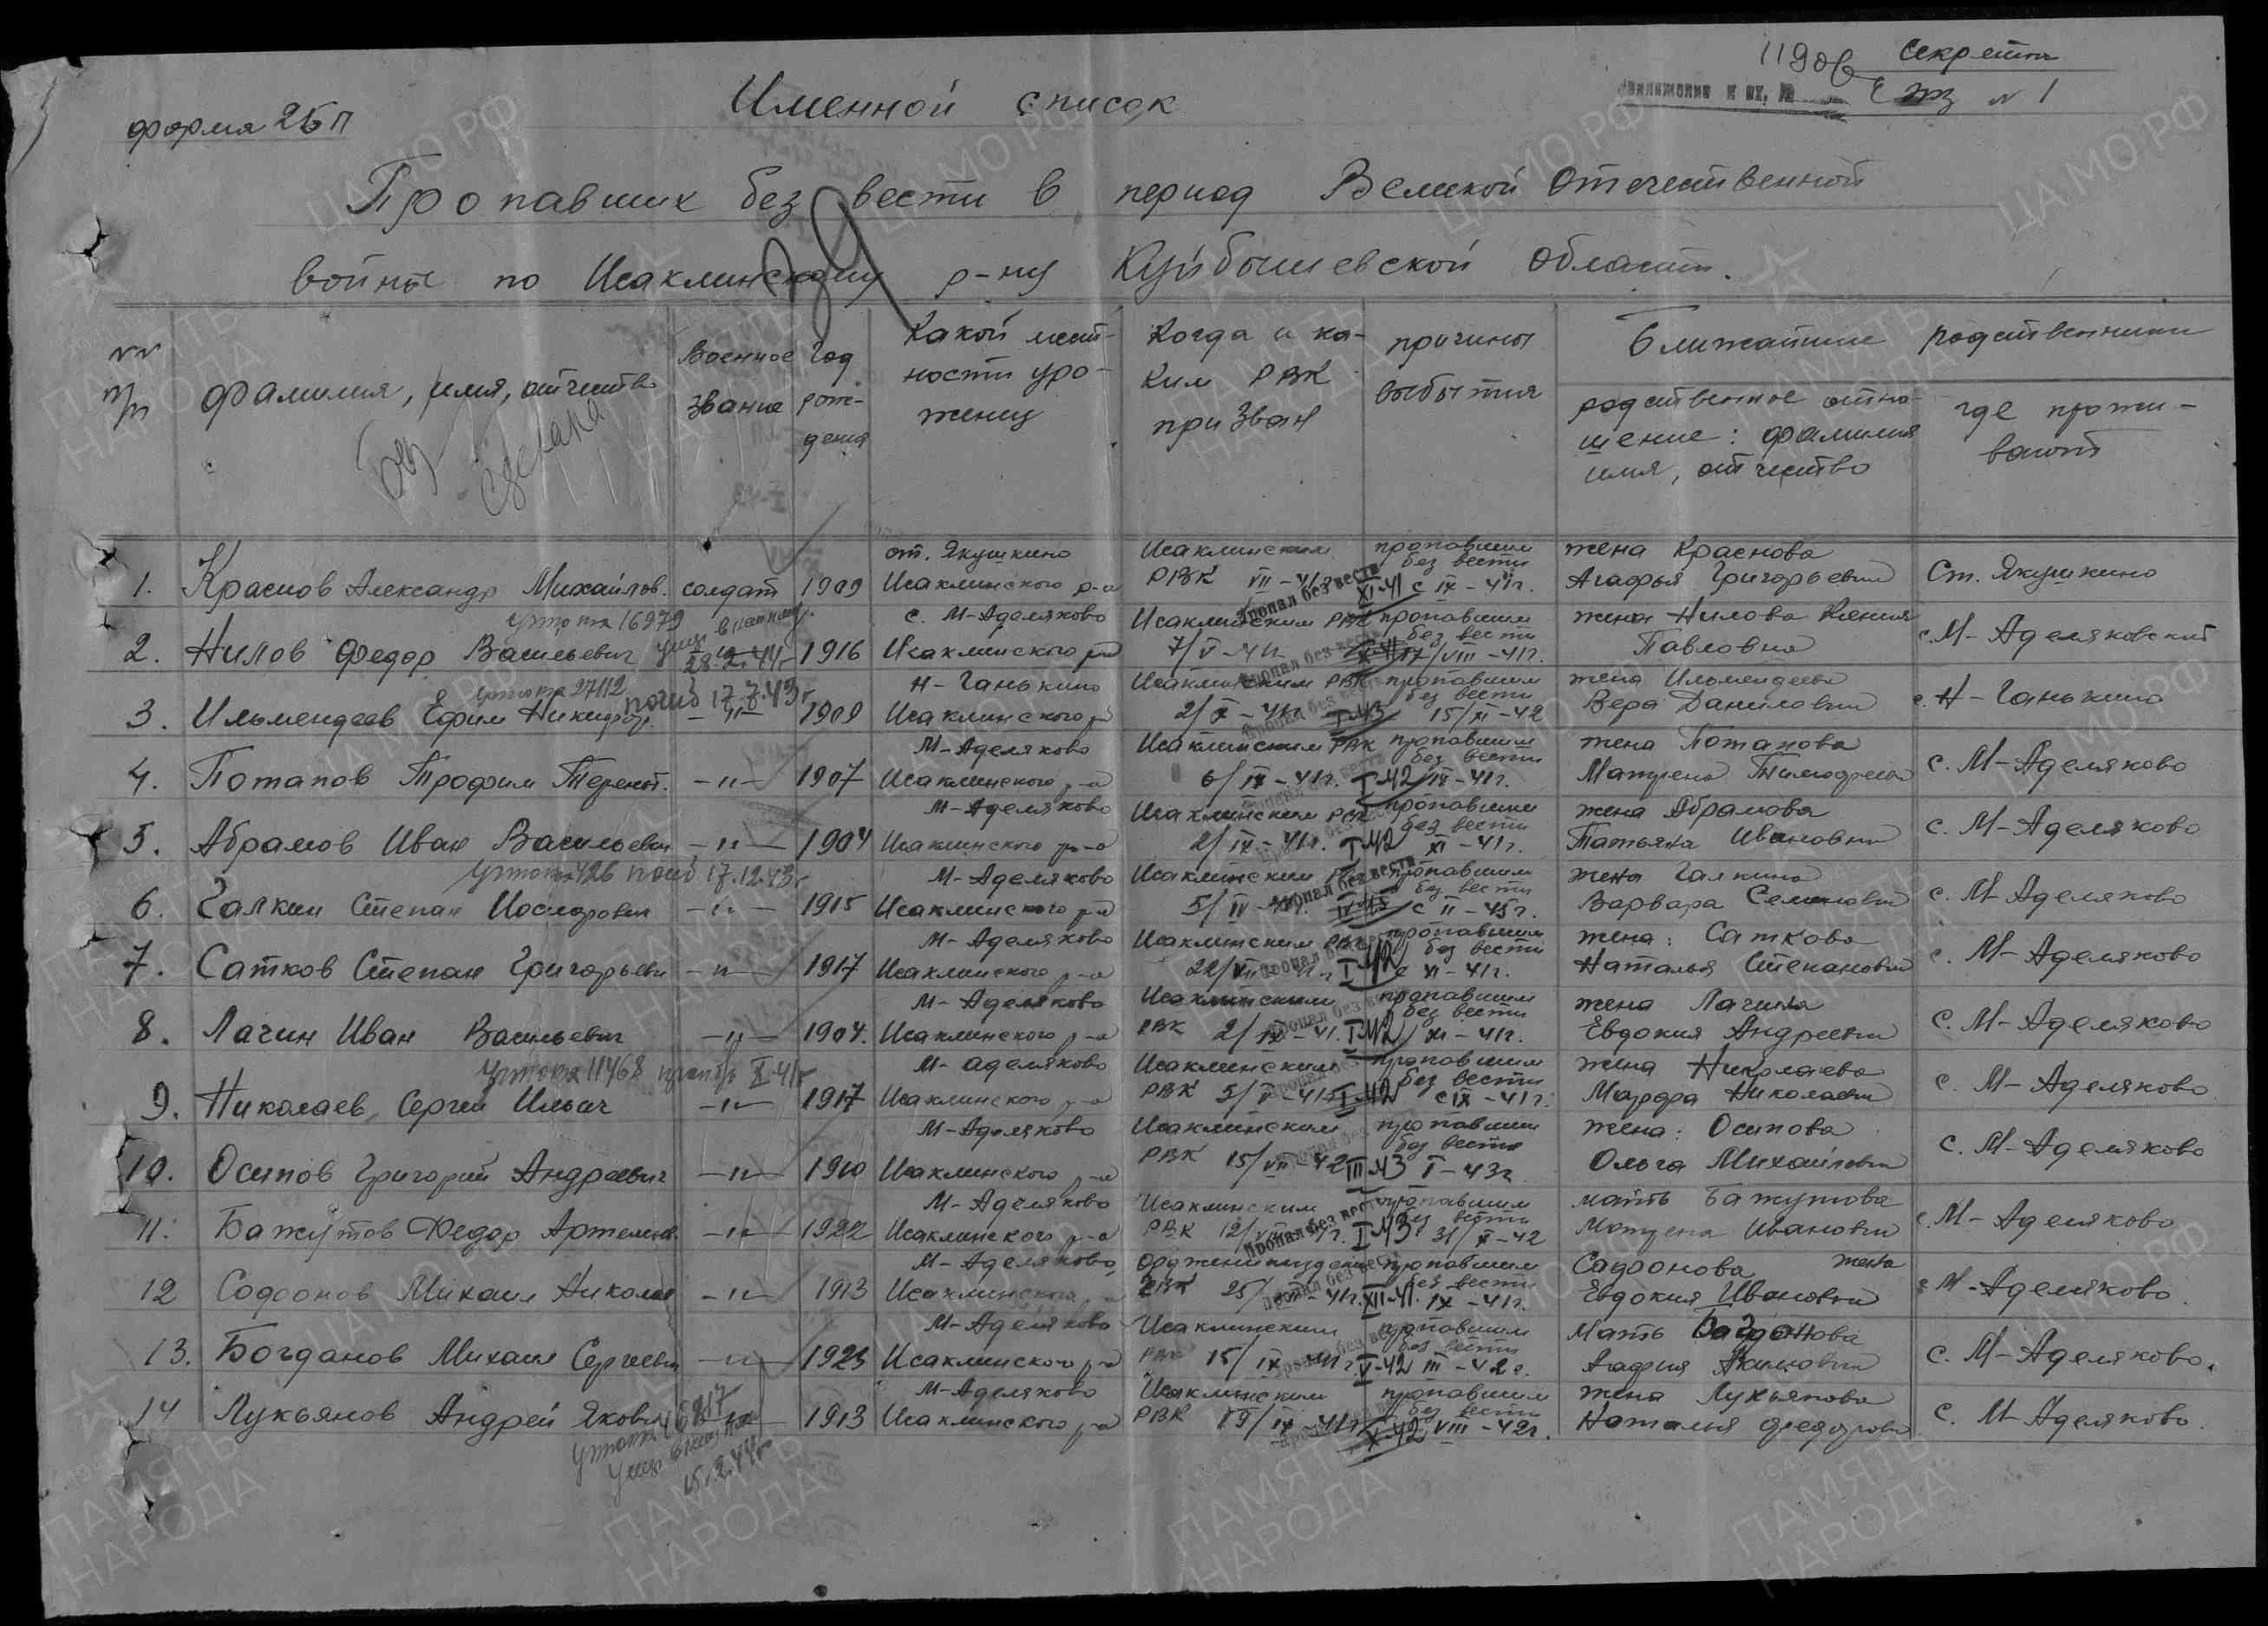 11906 Секретно
Приложение к вх. №
экз N 1
форма 2БП
Именной список
Пропавших без вести в период Великой Отечественной
войны по Исаклинскому р-ну Куйбышевской области.
NN п/п
фамилия, имя, отчество
Военное звание
Год рождения
Какой местности уроженец
Когда и каким РВК призван
причины выбытия
Ближайшие родственники
родственное отношение: фамилия имя, отчество
где проживают
1. Краснов Александр Михайлов. солдат 1909 ст. Якушкино Исаклинского р-а Исаклинским РВК VII-41г. пропавшим без вести с IX-41г. XI-41 жена Краснова Агафья Григорьевна Ст. Якушкино
2. Нилов Федор Васильевич 1916 с. М-Аделяково Исаклинского р-а Исаклинским РВК 7/V-41г. пропавшим без вести 17/VIII-41г. жена Нилова Ксения Павловна с. М-Аделяковский
28.2.44г
3. Ильмендеев Ефим Никифор. -"- 1909 Н-Ганькино Исаклинского р-а Исаклинским РВК 2/X-41г. I-43 пропавшим без вести 15/XI-42 жена Ильмендеева Вера Даниловна с. Н-Ганькино
погиб 17.7.43г
4. Потапов Трофим Терент. -"- 1907 М-Аделяково Исаклинского р-а Исаклинским РВК 6/IX-41г. I-42 пропавшим без вести IX-41г. жена Потапова Матрена Тимофеевна с. М-Аделяково
5. Абрамов Иван Васильевич -"- 1904 М-Аделяково Исаклинского р-а Исаклинским РВК 2/IX-41г. I-42 пропавшим без вести XI-41г. жена Абрамова Татьяна Ивановна с. М-Аделяково
погиб 17.12.43г
6. Галкин Степан -"- 1915 М-Аделяково Исаклинского р-а Исаклинским пропавшим без вести с II-45г. жена Галкина Варвара Семеновна с. М-Аделяково
7. Сатков Степан Григорьевич -"- 1917 М-Аделяково Исаклинского р-а Исаклинским РВК I-42 пропавшим без вести с XI-41г. жена: Саткова Наталья Степановна с. М-Аделяково
8. Лачин Иван Васильевич -"- 1904. М-Аделяково Исаклинского р-а Исаклинским РВК 2/IX-41. I-42 пропавшим без вести XI-41г. жена Лачина Евдокия Андреевна с. М-Аделяково
9. Николаев Сергей Ильич -"- 1917 М-Аделяково Исаклинского р-а Исаклинским РВК 5/V-41 I-42 пропавшим без вести с IX-41г. жена Николаева Марфа Николаевна с. М-Аделяково
10. Осипов Григорий Андреевич -"- 1910 М-Аделяково Исаклинского р-а Исаклинским РВК 15/VII-42 III-43 пропавшим без вести I-43г. жена: Осипова Ольга Михайловна с. М-Аделяково
11. Бажутов Федор Артемьев. -"- 1922 М-Аделяково Исаклинского р-а Исаклинским РВК I-43 пропавшим без вести 31/X-42 мать Бажутова Матрена Ивановна с. М-Аделяково
12 Сафронов Михаил Николаев -"- 1913 М-Аделяково Исаклинского р-а РВК XII-41. пропавшим без вести IX-41г. Сафронова жена Евдокия Ивановна с. М-Аделяково
13. Богданов Михаил Сергеевич -"- 1923 М-Аделяково Исаклинского р-а Исаклинским РВК 15/IX-41г. V-42 пропавшим без вести III-42г. Мать Богданова с. М-Аделяково.
14 Лукьянов Андрей Яковл -"- 1913 М-Аделяково Исаклинского р-а Исаклинским РВК 19/IX-41г. X-42 пропавшим без вести VIII-42г. жена Лукьянова Наталья Федоровна с. М-Аделяково.
Пропал без вести
ЦАМО РФ
ПАМЯТЬ НАРОДА